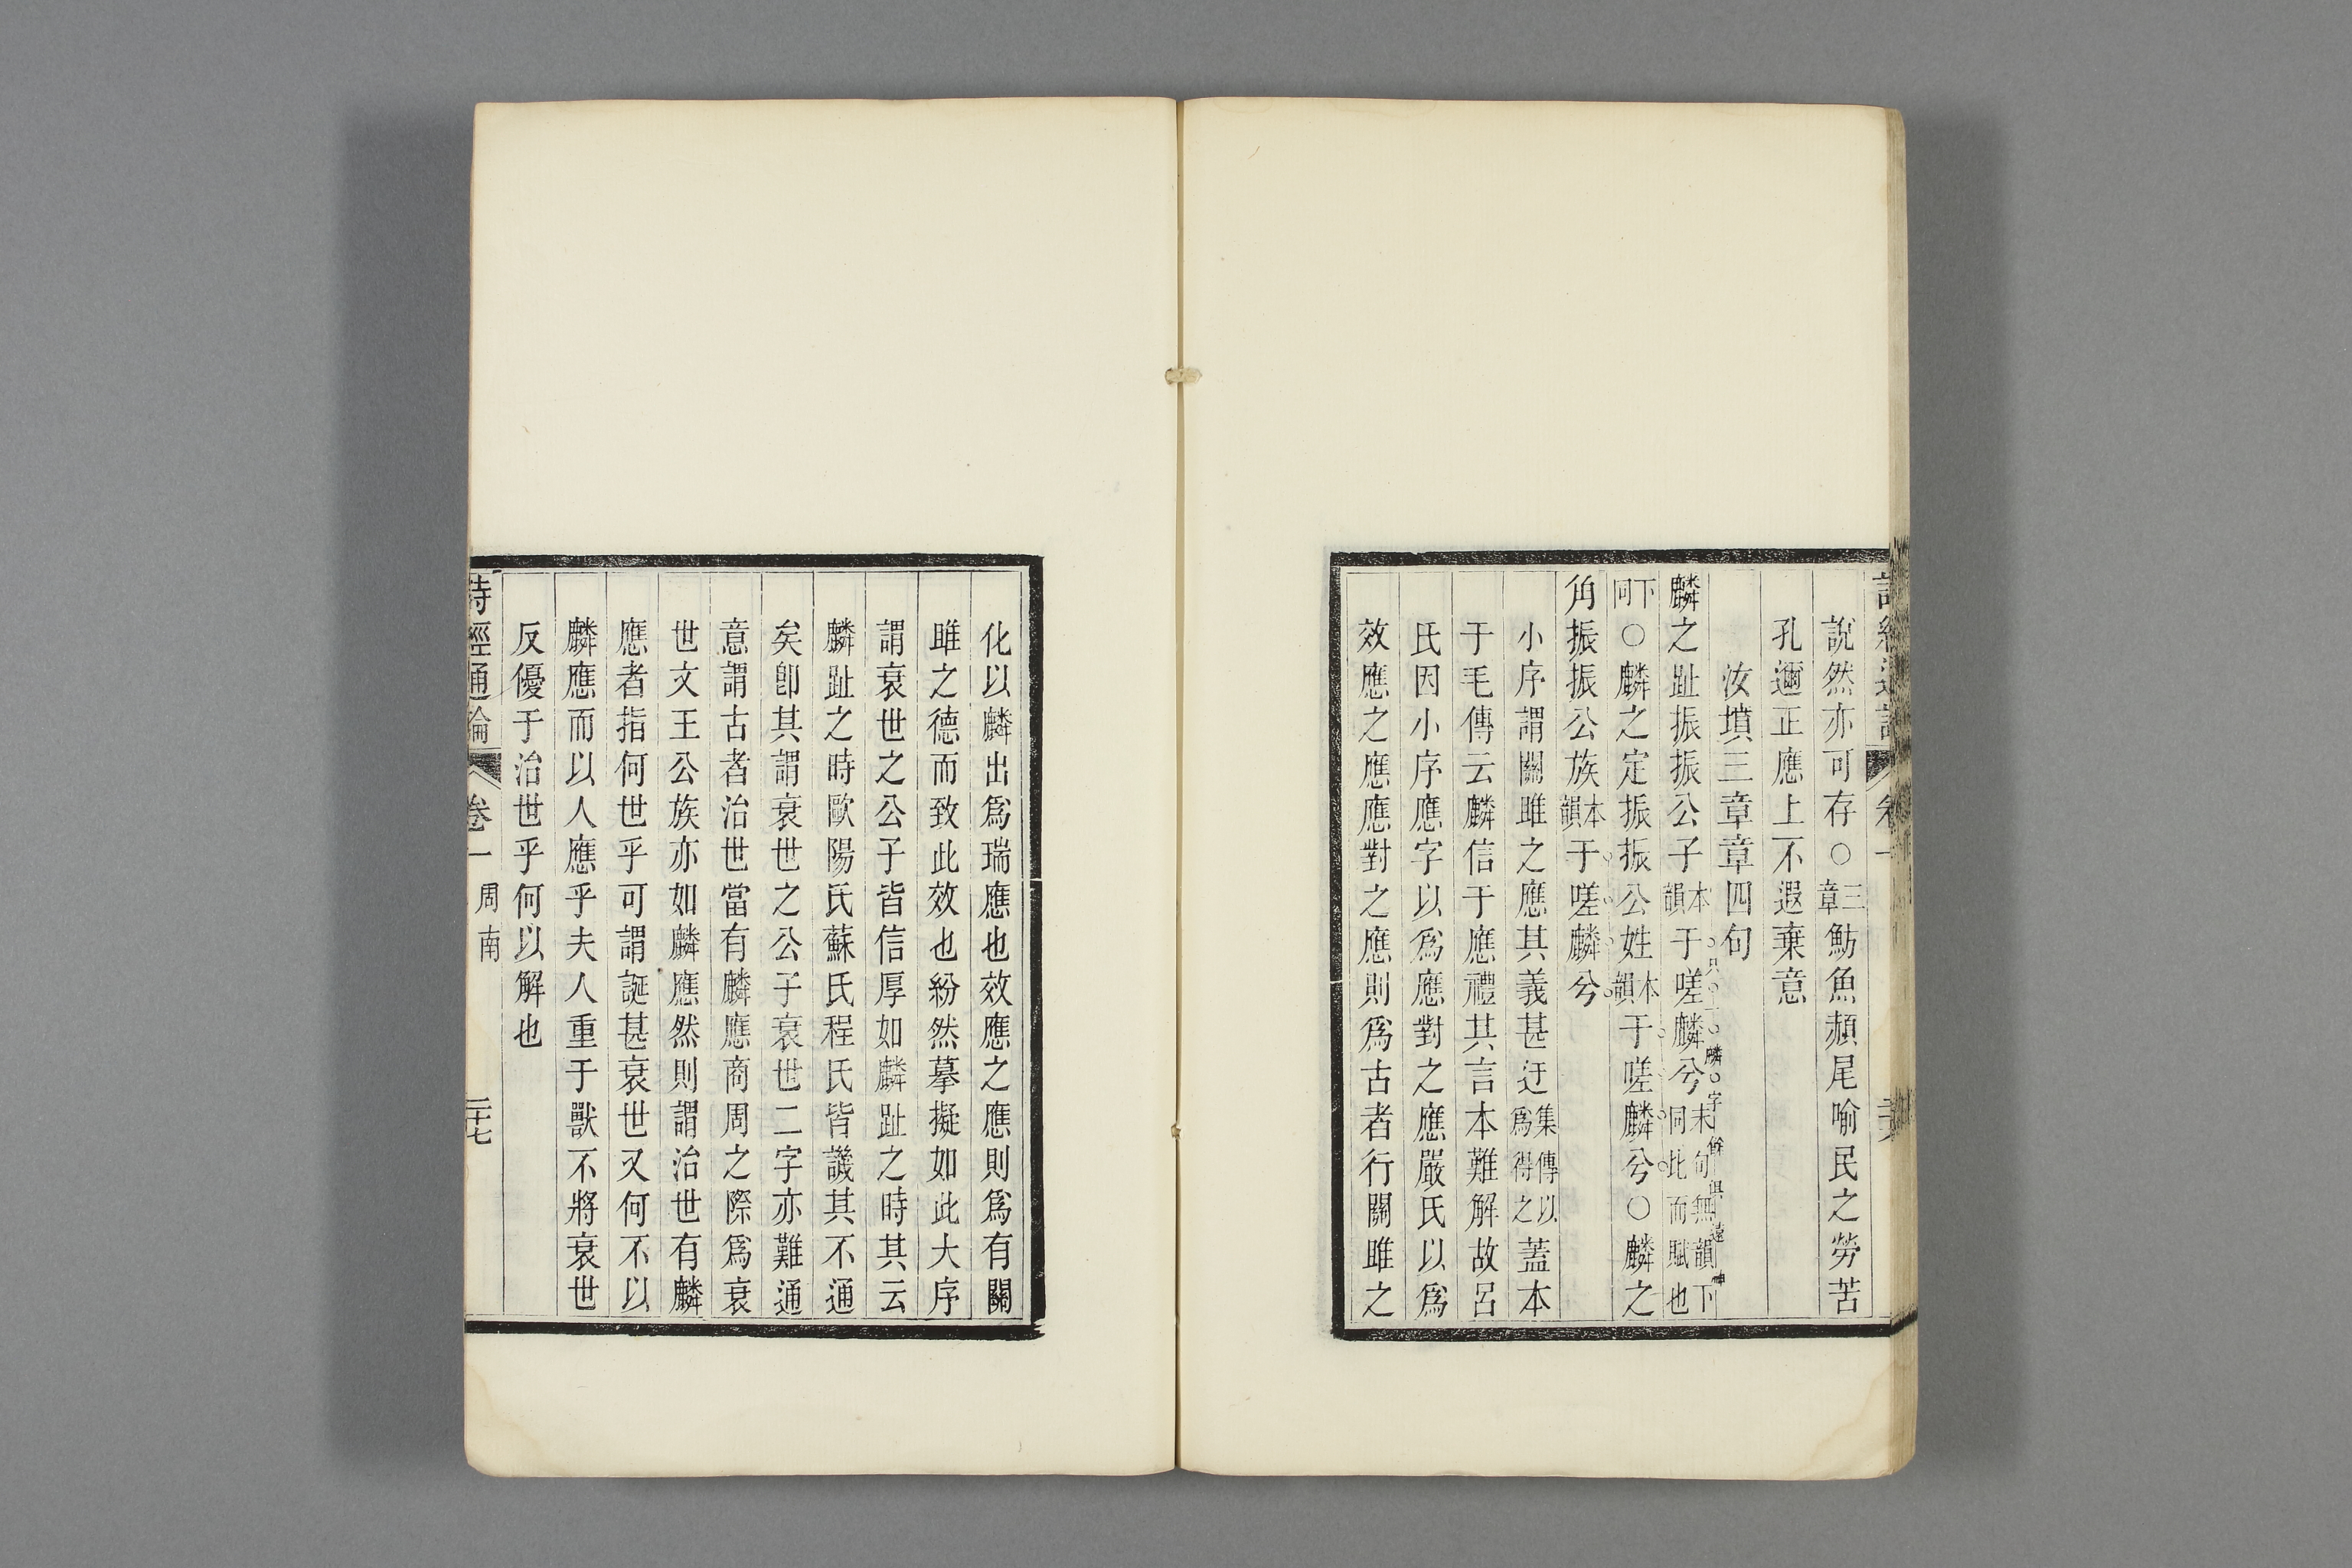 說然亦可存○三章魴魚赬尾喻民之勞苦
孔邇正應上不遐棄意
汝墳三章章四句
麟之趾振振公子本韻于嗟麟兮末句無韻下同比而賦也
只一麟字餘俱遠神
下同○麟之定振振公姓本韻于嗟麟兮○麟之
角振振公族本韻于嗟麟兮
小序謂關雎之應其義甚迂集傳以爲得之蓋本
于毛傳云麟信于應禮其言本難解故呂
氏因小序應字以爲應對之應嚴氏以爲
效應之應應對之應則爲古者行關雎之
化以麟出爲瑞應也效應之應則爲有關
雎之德而致此效也紛然摹擬如此大序
謂衰世之公子皆信厚如麟趾之時其云
麟趾之時歐陽氏蘇氏程氏皆譏其不通
矣卽其謂衰世之公子衰世二字亦難通
意謂古者治世當有麟應商周之際爲衰
世文王公族亦如麟應然則謂治世有麟
應者指何世乎可謂誕甚衰世又何不以
麟應而以人應乎夫人重于獸不將衰世
反優于治世乎何以解也
詩經通論 卷一 周南 二十七